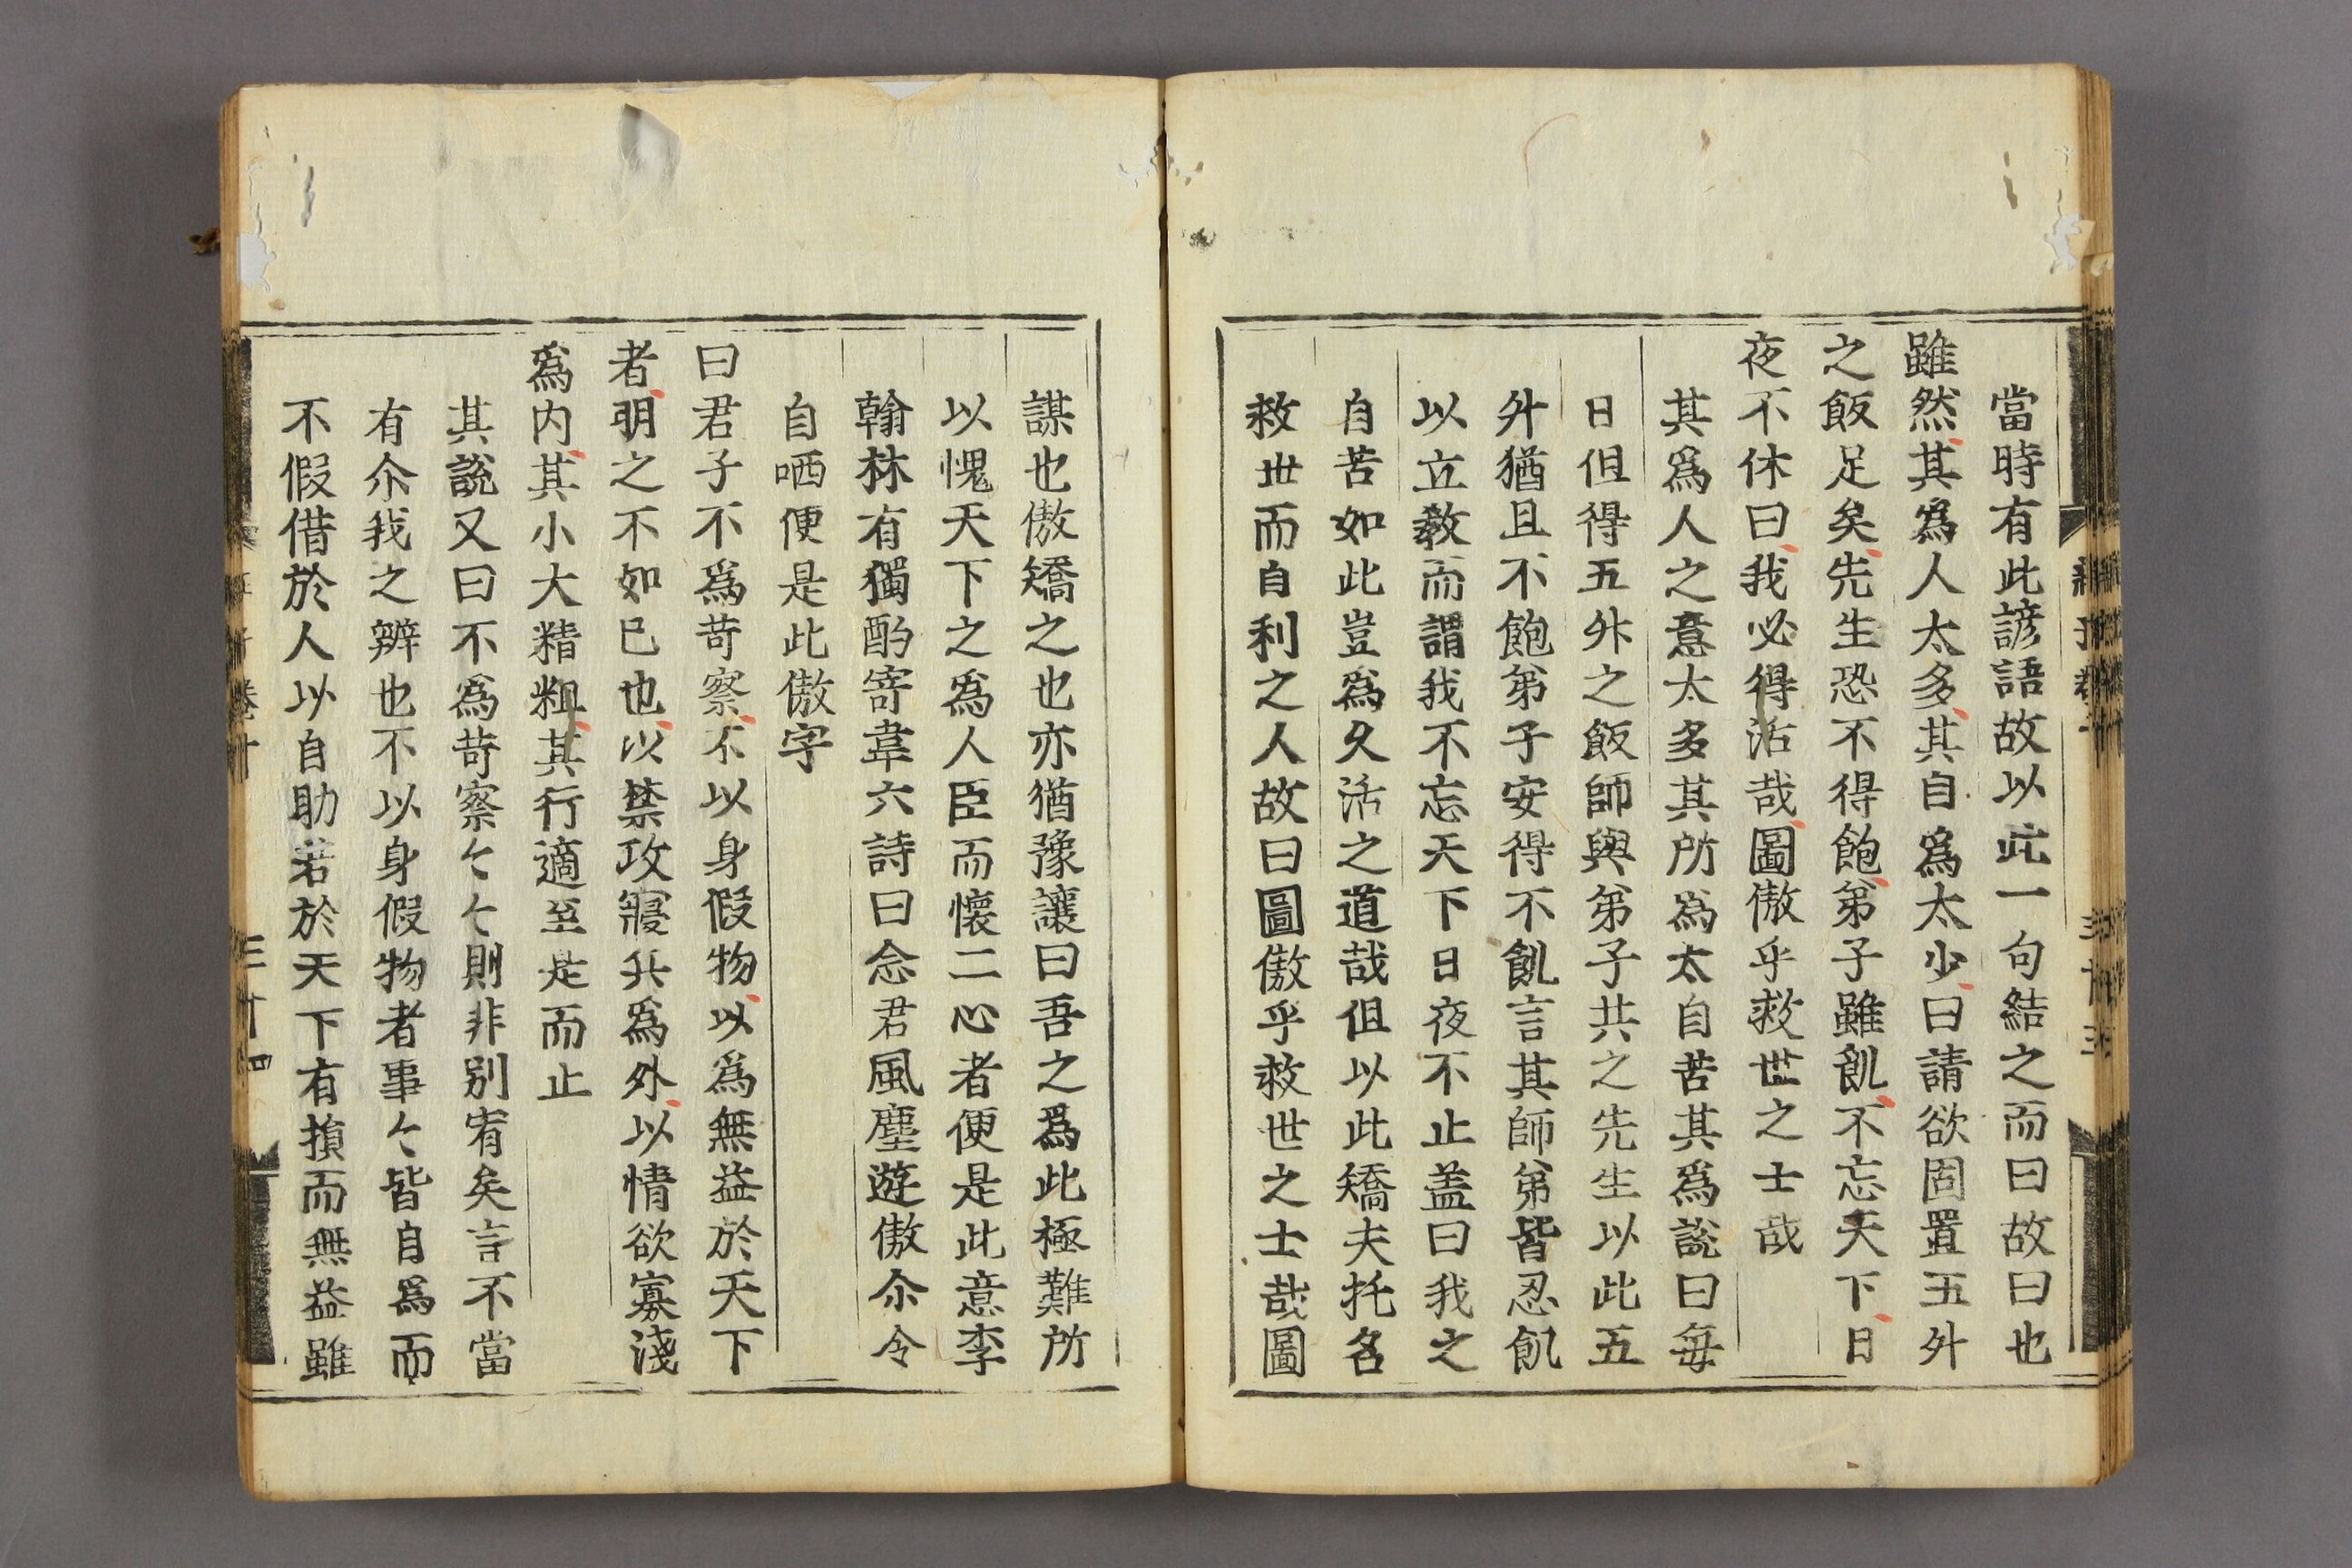 當時有此諺語故以此一句結之而曰故曰也
雖然其爲人太多其自爲太少曰請欲固置五升
之飯足矣先生恐不得飽弟子雖飢不忘天下日
夜不休曰我必得活哉圖傲乎救世之士哉
其爲人之意太多其所爲太自苦其爲說曰每
日但得五升之飯師與弟子共之先生以此五
升猶且不飽弟子安得不飢言其師弟皆忍飢
以立敎而謂我不忘天下日夜不止盖曰我之
自苦如此豈爲久活之道哉但以此矯夫托名
救世而自利之人故曰圖傲乎救世之士哉圖
謀也傲矯之也亦猶豫讓曰吾之爲此極難所
以愧天下之爲人臣而懷二心者便是此意李
翰林有獨酌寄韋六詩曰念君風塵遊傲尒令
自哂便是此傲字
曰君子不爲苛察不以身假物以爲無益於天下
者明之不如已也以禁攻寢兵爲外以情欲寡淺
爲内其小大精粗其行適至是而止
其說又曰不爲苛察〻〻則非别宥矣言不當
有尒我之辨也不以身假物者事〻皆自爲而
不假借於人以自助若於天下有損而無益雖
三十四